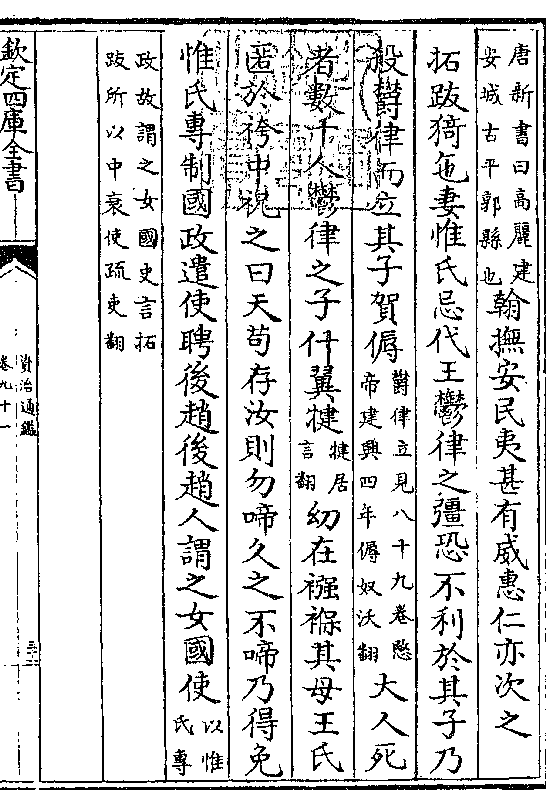 唐新書曰高麗建
安城古平郭縣也
翰撫安民夷甚有威惠仁亦次之
拓跋猗㐌妻惟氏忌代王鬱律之彊恐不利於其子乃
殺鬱律而立其子賀傉
鬱律立見八十九卷愍
帝建興四年傉奴沃翻
大人死
者數千人鬱律之子什翼犍
犍居
言翻
幼在襁褓其母王氏
匿於袴中祝之曰天苟存汝則勿啼久之不啼乃得免
惟氏專制國政遣使聘後趙後趙人謂之女國使
以惟
氏專
政故謂之女國史言拓
跋所以中衰使疏吏翻
欽定四庫全書
資治通鑑
卷九十一